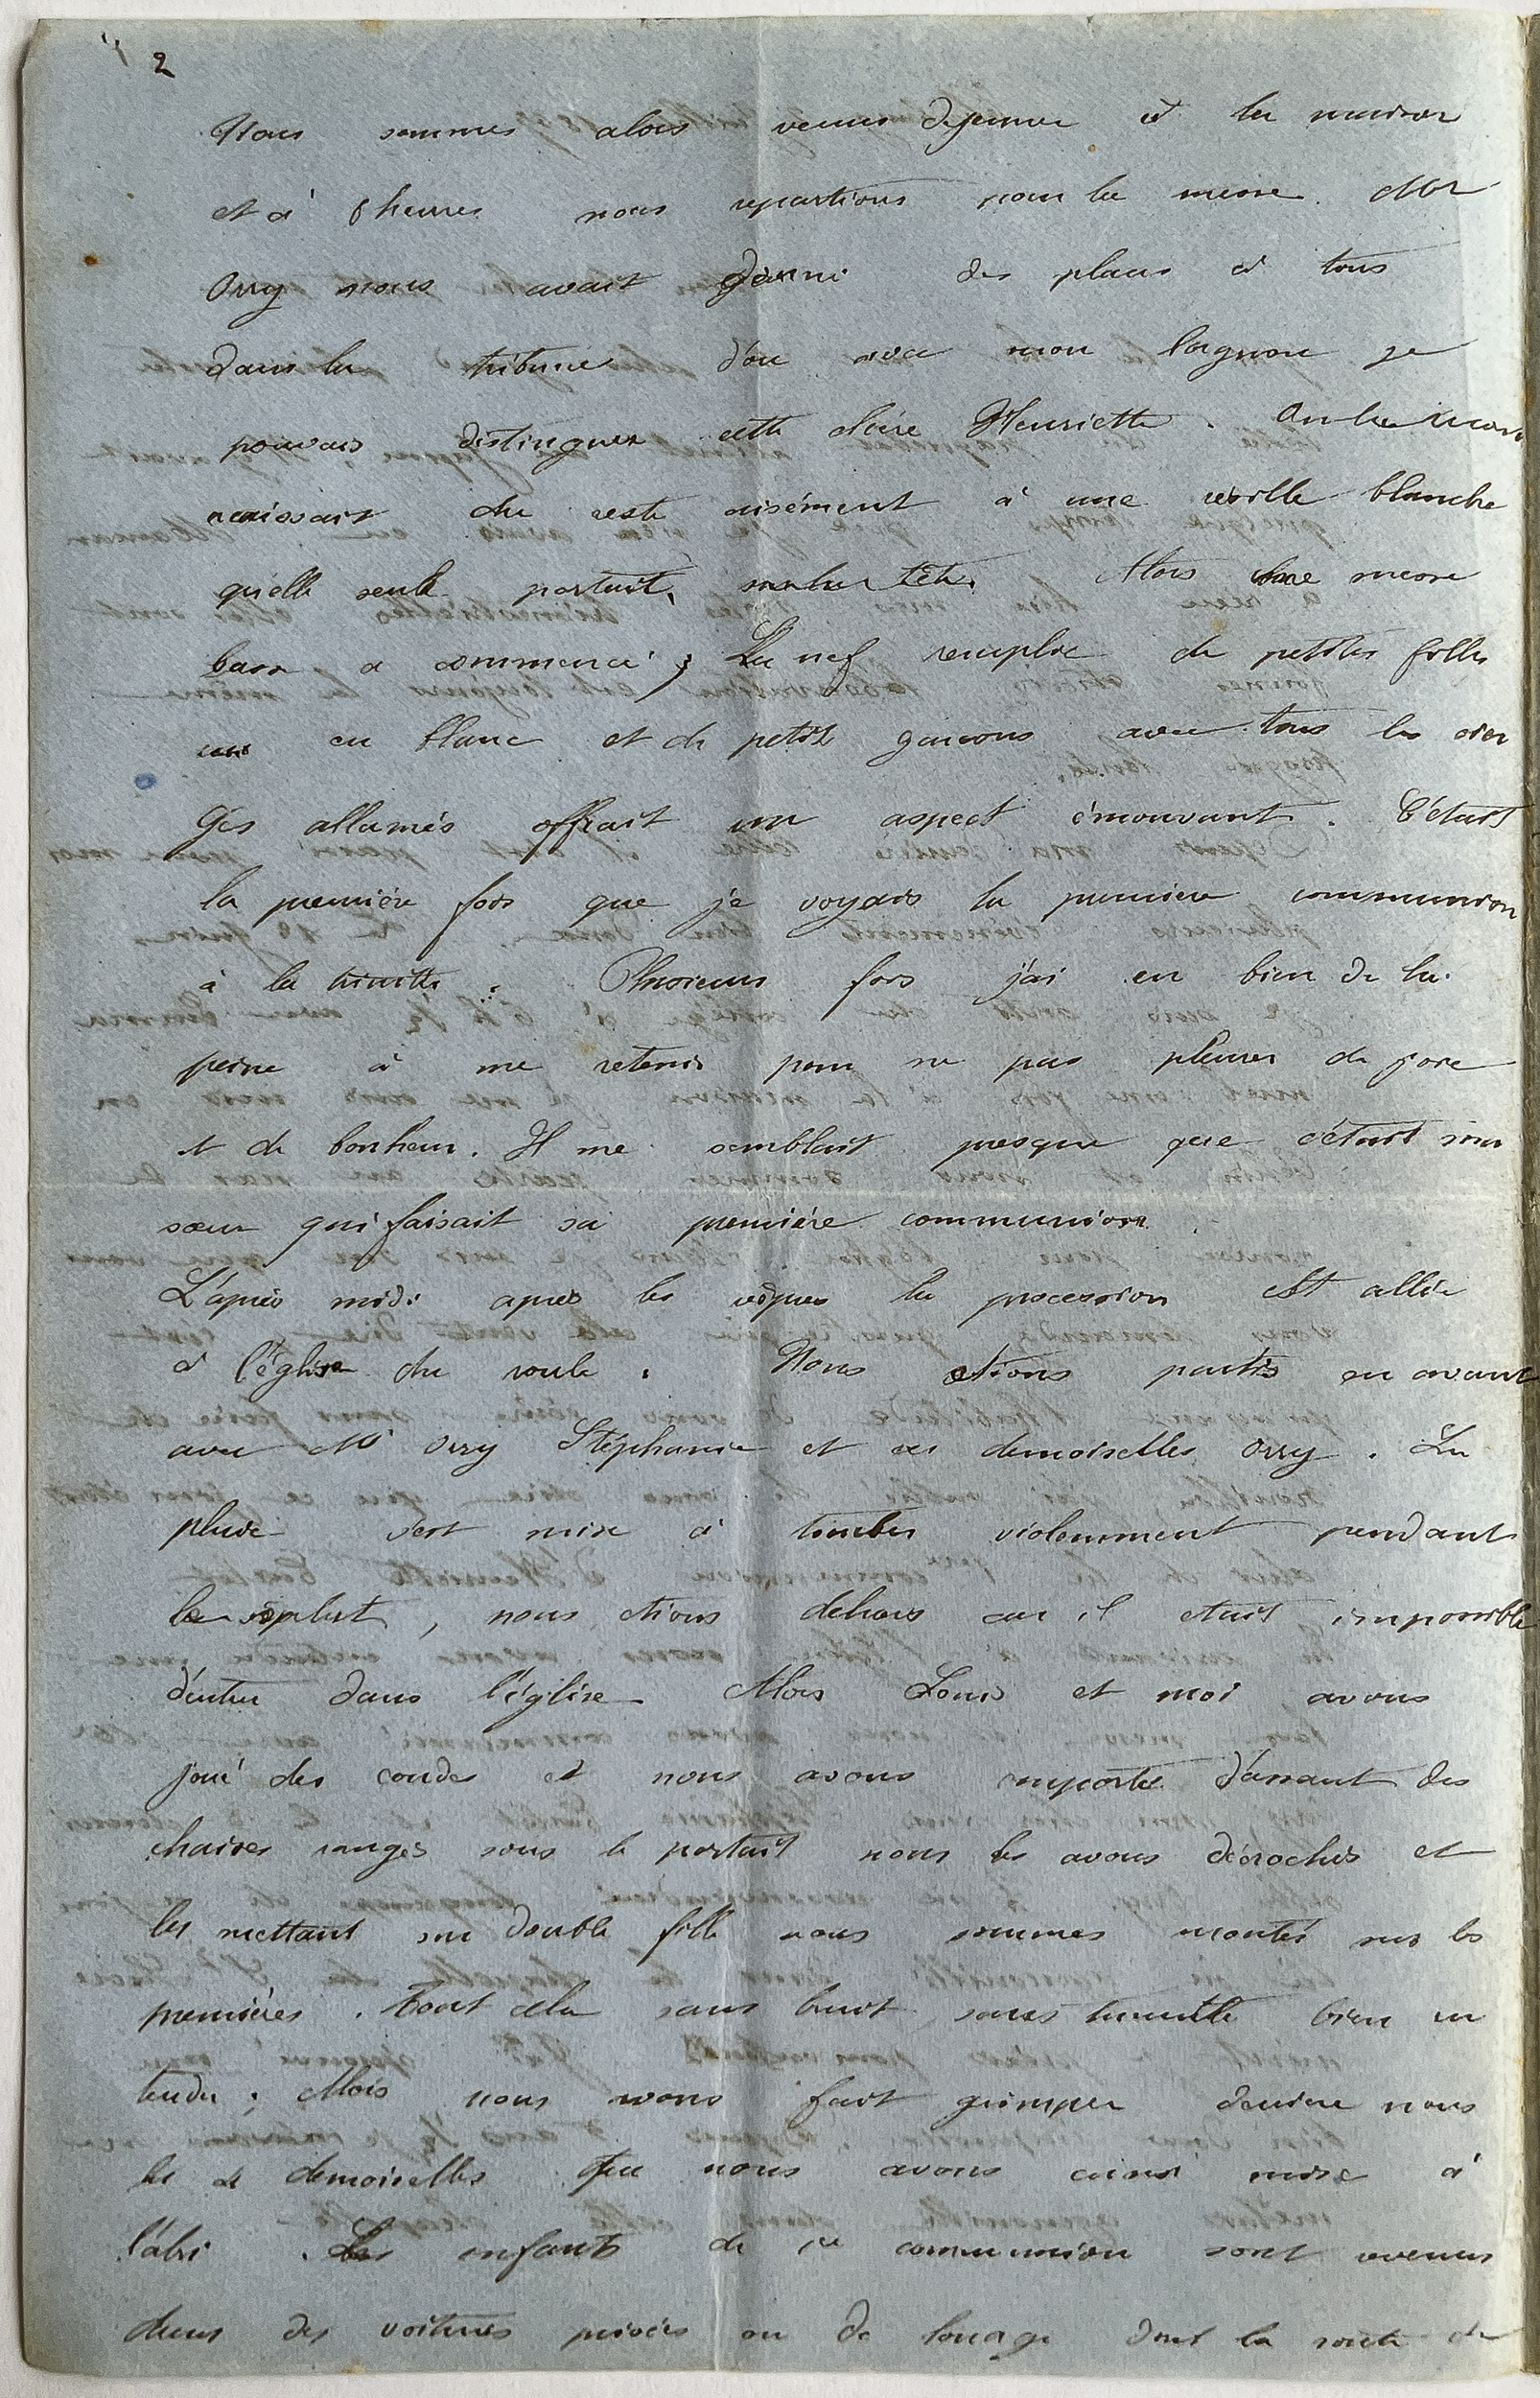 2
Nous sommes alors venus dejeuner à la maison
et à 8 heures nous repartions pour la messe. Mr
Orry nous avait donné des places à tous
dans la tribune d'ou avec mon lorgnon je
pouvais distinguer cette chère Henriette. On la recon
naissait du reste aisément à une résille blanche
qu'elle seule portait, sur la tête. Alors une messe
basse a commencé; La nef remplie de petites filles
en blanc et de petits garcons avec tous les cier
ges allumés offrait un aspect émouvant. C'était
la première fois que je voyais la premiere communion
à la trinité. Plusieurs fois j'ai eu bien de la
peine à me retenir pour ne pas pleurer de joie
et de bonheur. Il me semblait presque que c'était ma
sœur qui faisait sa première communion.
L'après midi apres les vêpres la procession est allée
à l'église du roule. Nous etions partis en avant
avec Mr Orry Stéphanie et les demoiselles Orry. La
pluie s'est mise à tomber violemment pendant
le salut, nous etions dehors car il etait impossible
d'entrer dans l'église. Alors Louis et moi avons
joué des coudes et nous avons emporté d'assaut des
chaises rangés sous le portail nous les avons décrochés et
les mettant sur double fille nous sommes montés sur les
premières. Tout cela sans bruit sans tumulte bien en
tendu; Alors nous avons fait grimper derriere nous
les 2 demoiselles que nous avons ainsi mise à
l'abri. Les enfants de 1re communion sont revenus
dans des voitures privées ou de louage dont la route de